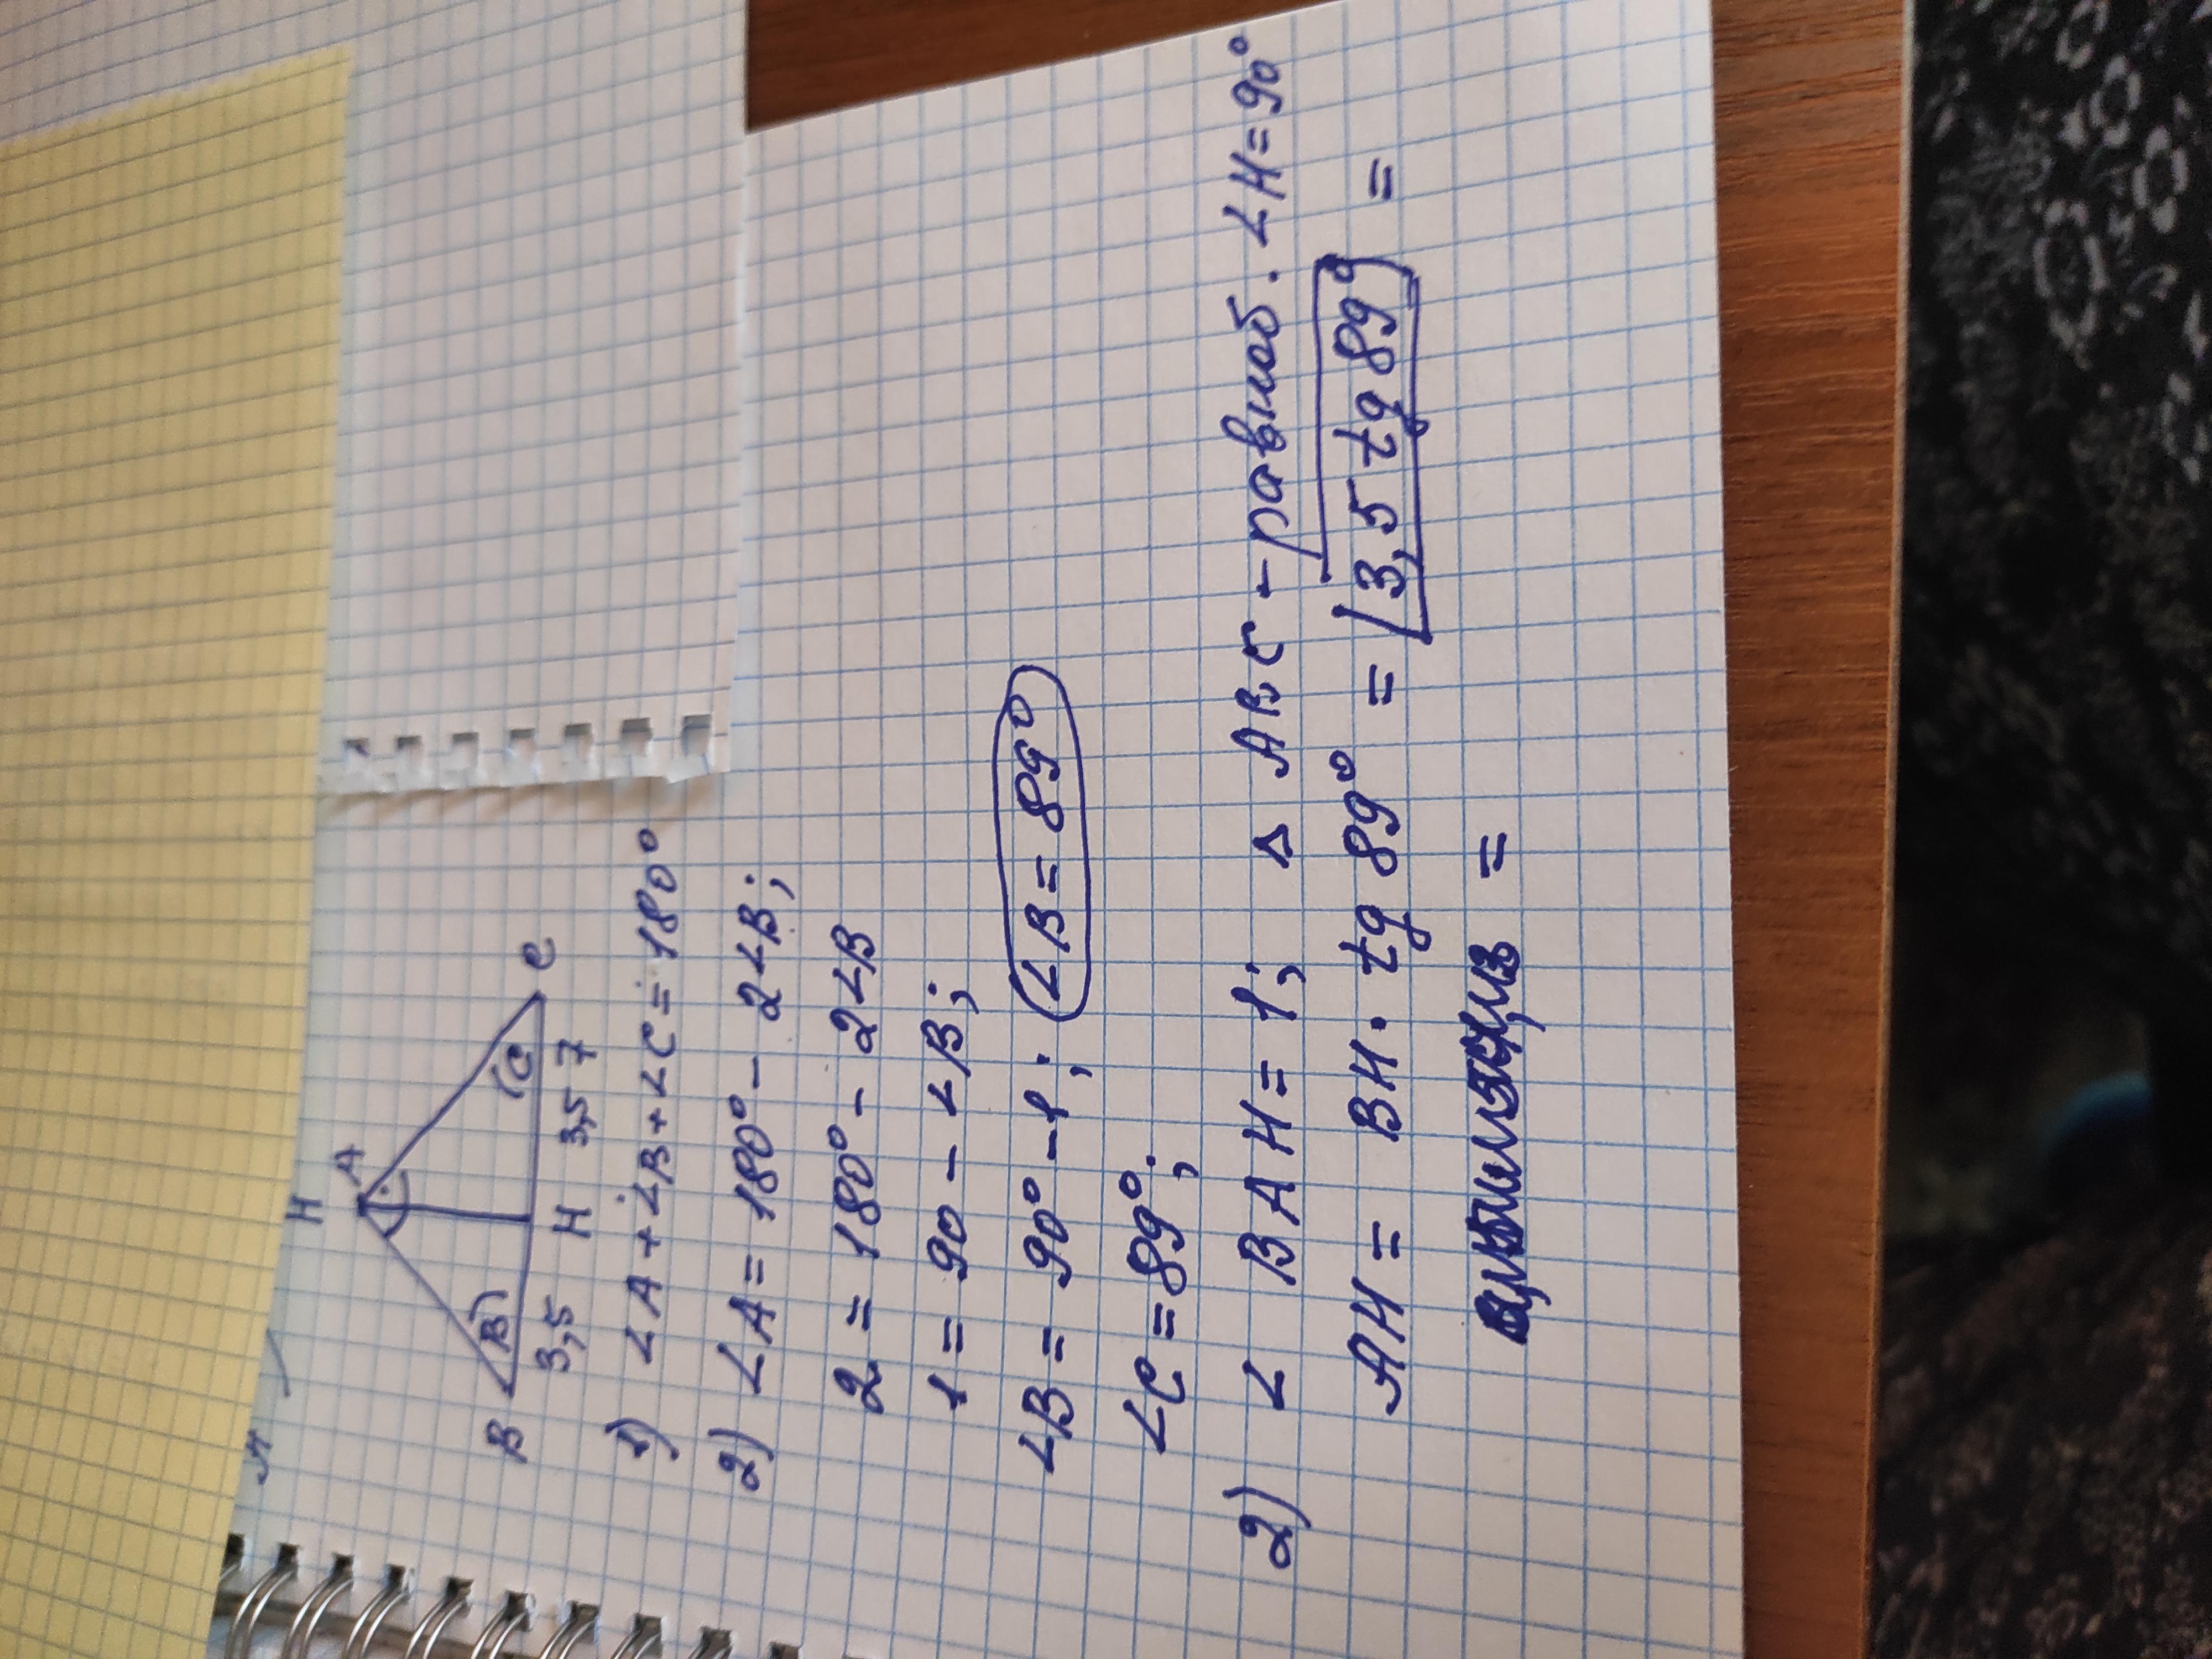 H
A
B
B
C
C
3,5 H 3,5 7
1) ∠A + ∠B + ∠C = 180°
2) ∠A = 180° - 2∠B;
2 = 180° - 2∠B
1 = 90 - ∠B;
∠B = 90° - 1; ∠B = 89°
∠C = 89°;
2) ∠ BAH = 1; Δ ABC - равноб. ∠H = 90°
AH = BH · tg 89° = 3,5 tg 89° =
=